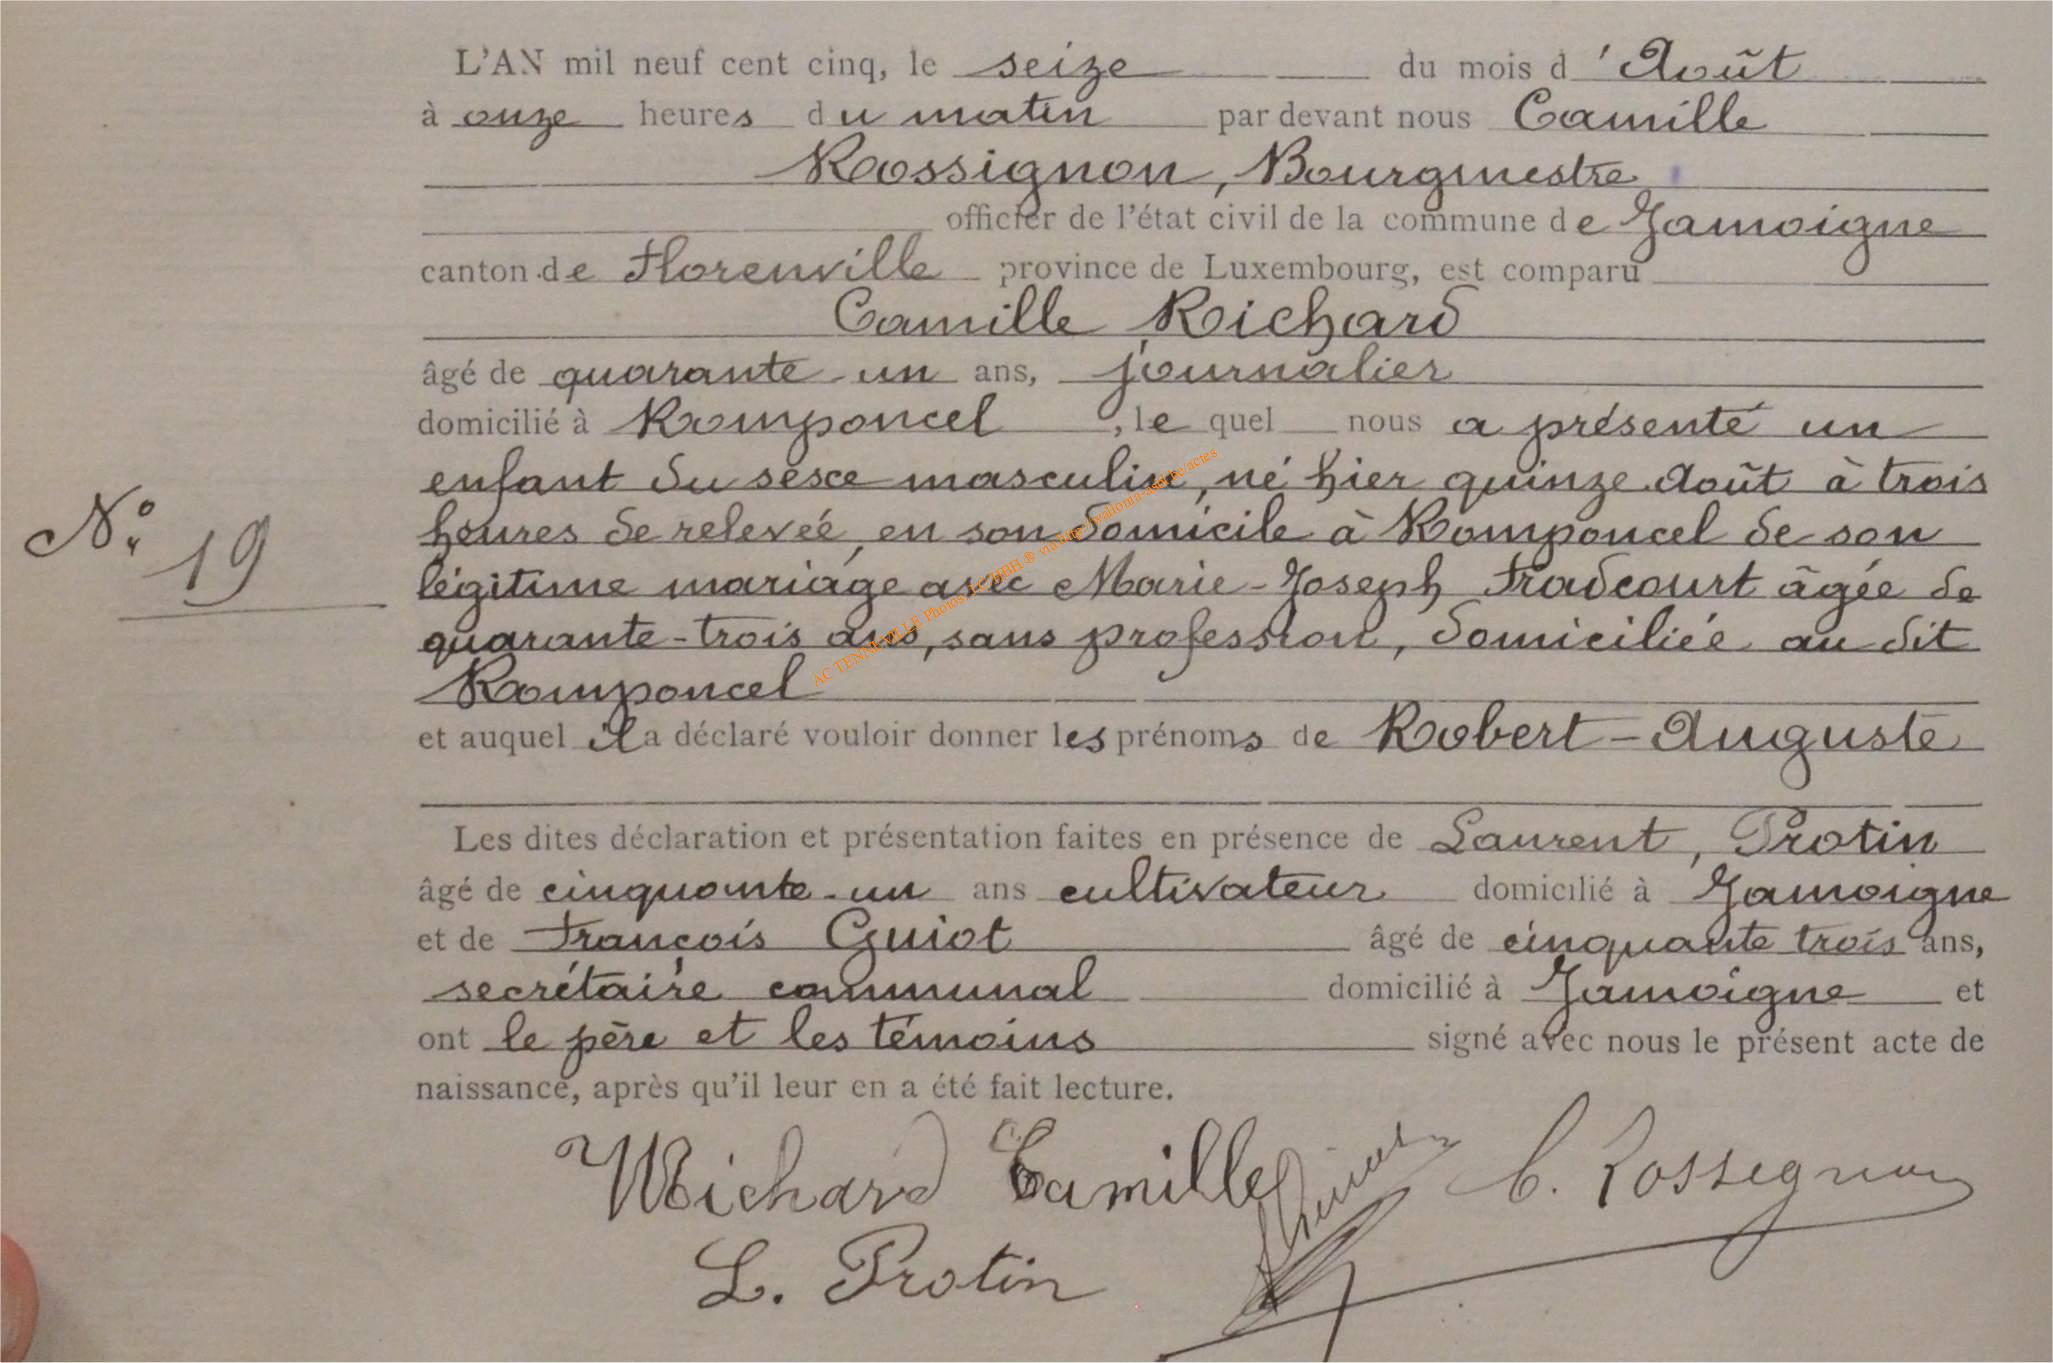 L'AN mil neuf cent cinq, le seize du mois d'Août
à onze heures du matin par devant nous Camille
Rossignon, Bourgmestre
officier de l'état civil de la commune de Jamoigne
canton de Florenville province de Luxembourg, est comparu
Camille Richard
âgé de quarante-un ans, journalier
domicilié à Romponcel, le quel nous a présenté un
enfant du sesce masculin, né hier quinze Août à trois
heures de releveé, en son domicile à Romponcel de son
N° 19
légitime mariage avec Marie-Joseph Fradcourt âgée de
quarante-trois ans, sans profession, domiciliée au dit
Romponcel
et auquel il a déclaré vouloir donner les prénoms de Robert-Auguste
Les dites déclaration et présentation faites en présence de Laurent, Protin
âgé de cinquante-un ans cultivateur domicilié à Jamoigne
et de François Guiot âgé de cinquante trois ans,
secrétaire communal domicilié à Jamoigne et
ont le père et les témoins signé avec nous le présent acte de
naissance, après qu'il leur en a été fait lecture.
Richard Camille C. Rossignon
L. Protin